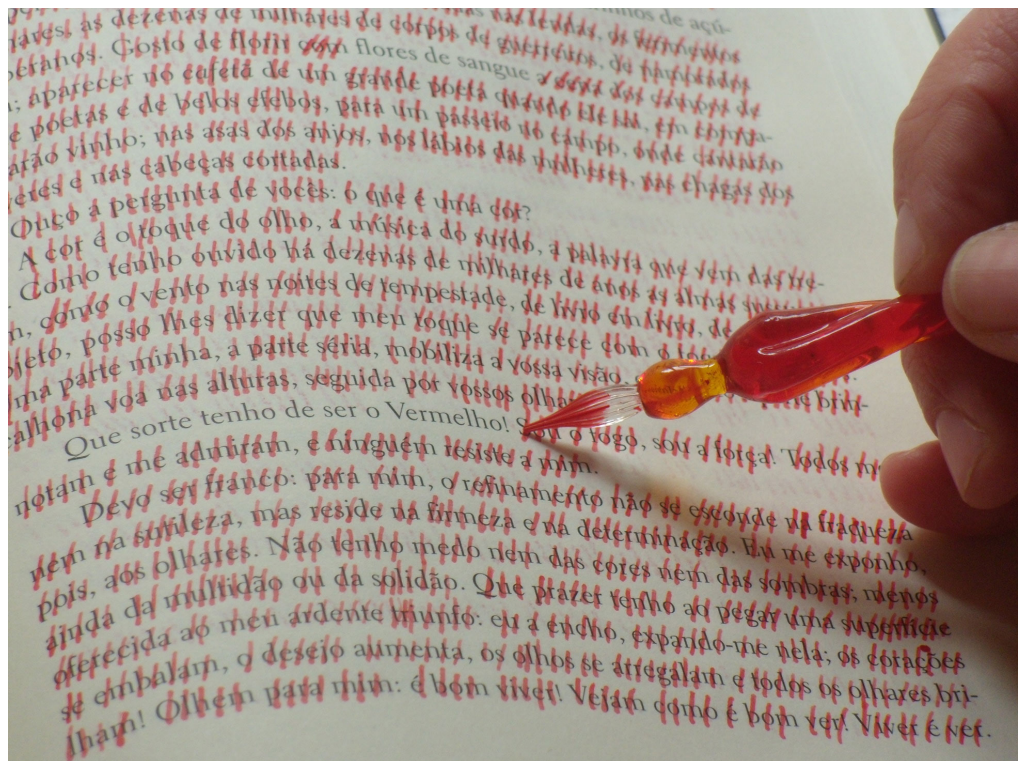 lares, as dezenas de milhares de corpos de guerreiros, de
peranos. Gosto de florir com flores de sangue a
; aparecer no cafetã de um grande poeta quando ele
e poetas e de belos efebos, para um passeio no campo, onde cantarão
arão vinho; nas asas dos anjos, nos lábios das mulheres, nas chagas dos
eres e nas cabeças cortadas.
Ouço a pergunta de vocês: o que é uma cor?
A cor é o toque do olho, a música do surdo, a palavra que vem das tre-
. Como tenho ouvido há dezenas de milhares de anos as almas
m, como o vento nas noites de tempestade, de livro em livro, de
jeto, posso lhes dizer que meu toque se parece com o
ma parte minha, a parte séria, mobiliza a vossa visão,
calhona voa nas alturas, seguida por vossos brin-
Que sorte tenho de ser o Vermelho! Sou o fogo, sou a força! Todos m
notam e me admiram, e ninguém resiste a mim.
Devo ser franco: para mim, o refinamento não se esconde na fraqueza
nem na sutileza, mas reside na firmeza e na determinação. Eu me exponho,
pois, aos olhares. Não tenho medo nem das cores nem das sombras; menos
ainda da multidão ou da solidão. Que prazer tenho ao pegar uma superfície
oferecida ao meu ardente triunfo: eu a encho, expando-me nela; os corações
se embalam, o desejo aumenta, os olhos se arregalam e todos os olhares bri-
lham! Olhem para mim: é bom viver! Vejam como é bom ver! Viver é ver.